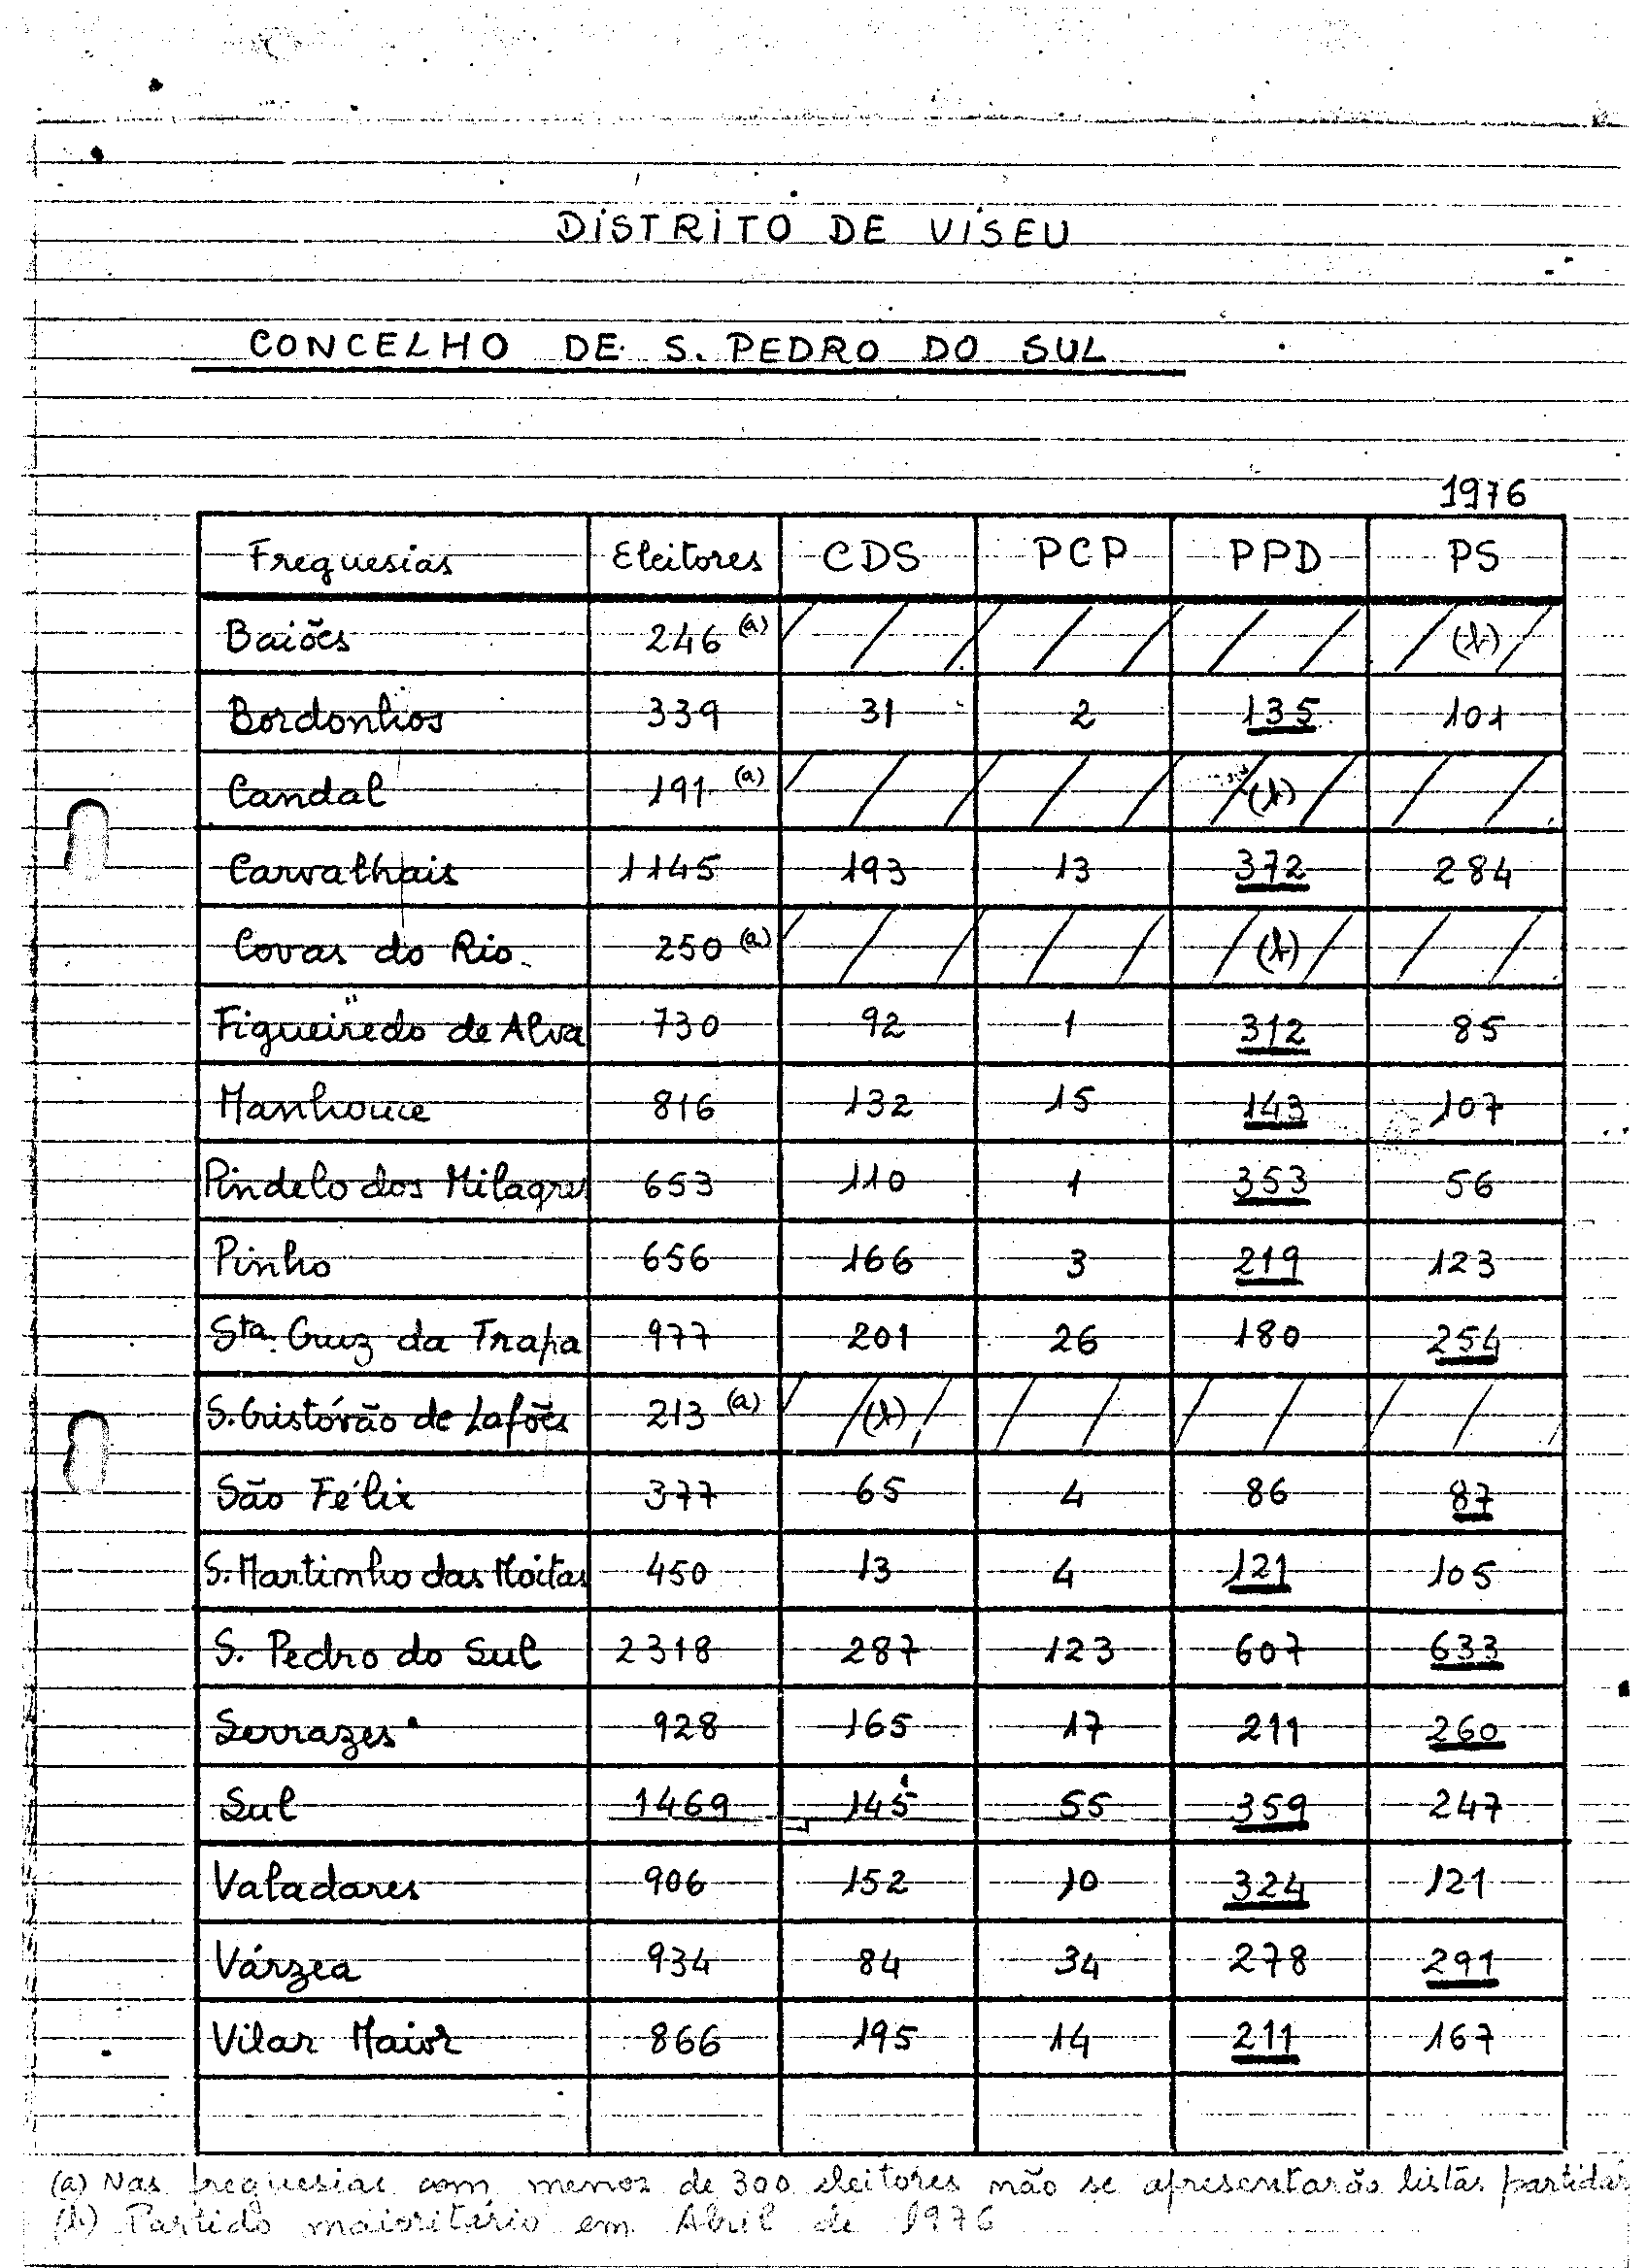 DISTRITO DE VISEU
CONCELHO DE S. PEDRO DO SUL
1976
Freguesias Eleitores CDS PCP PPD PS
Baiões 246 (a) (b)
Bordonhos 339 31 2 135 101
Candal 191 (a) (b)
Carvalhais 1145 193 13 372 284
Covas do Rio 250 (a) (b)
Figueiredo de Alva 730 92 1 312 85
Manhouce 816 132 15 143 107
Pindelo dos Milagres 653 110 1 353 56
Pinho 656 166 3 219 123
Sta. Cruz da Trapa 977 201 26 180 254
S. Cristóvão de Lafões 213 (a) (b)
São Félix 377 65 4 86 87
S. Martinho das Moitas 450 13 4 121 105
S. Pedro do Sul 2318 287 123 607 633
Serrazes 928 165 17 211 260
Sul 1469 145 55 359 247
Valadares 906 152 10 324 121
Várzea 934 84 34 278 291
Vilar Maior 866 195 14 211 167
(a) Nas freguesias com menos de 300 eleitores não se apresentarão listas partidár
(b) Partido maioritário em Abril de 1976